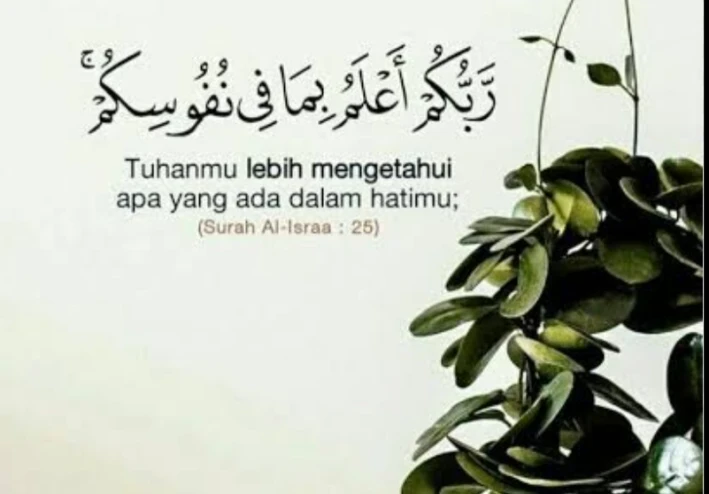 رَّبُّكُمْ أَعْلَمُ بِمَا فِى نُفُوسِكُمْ ۚ
Tuhanmu lebih mengetahui
apa yang ada dalam hatimu;
(Surah Al-Israa : 25)